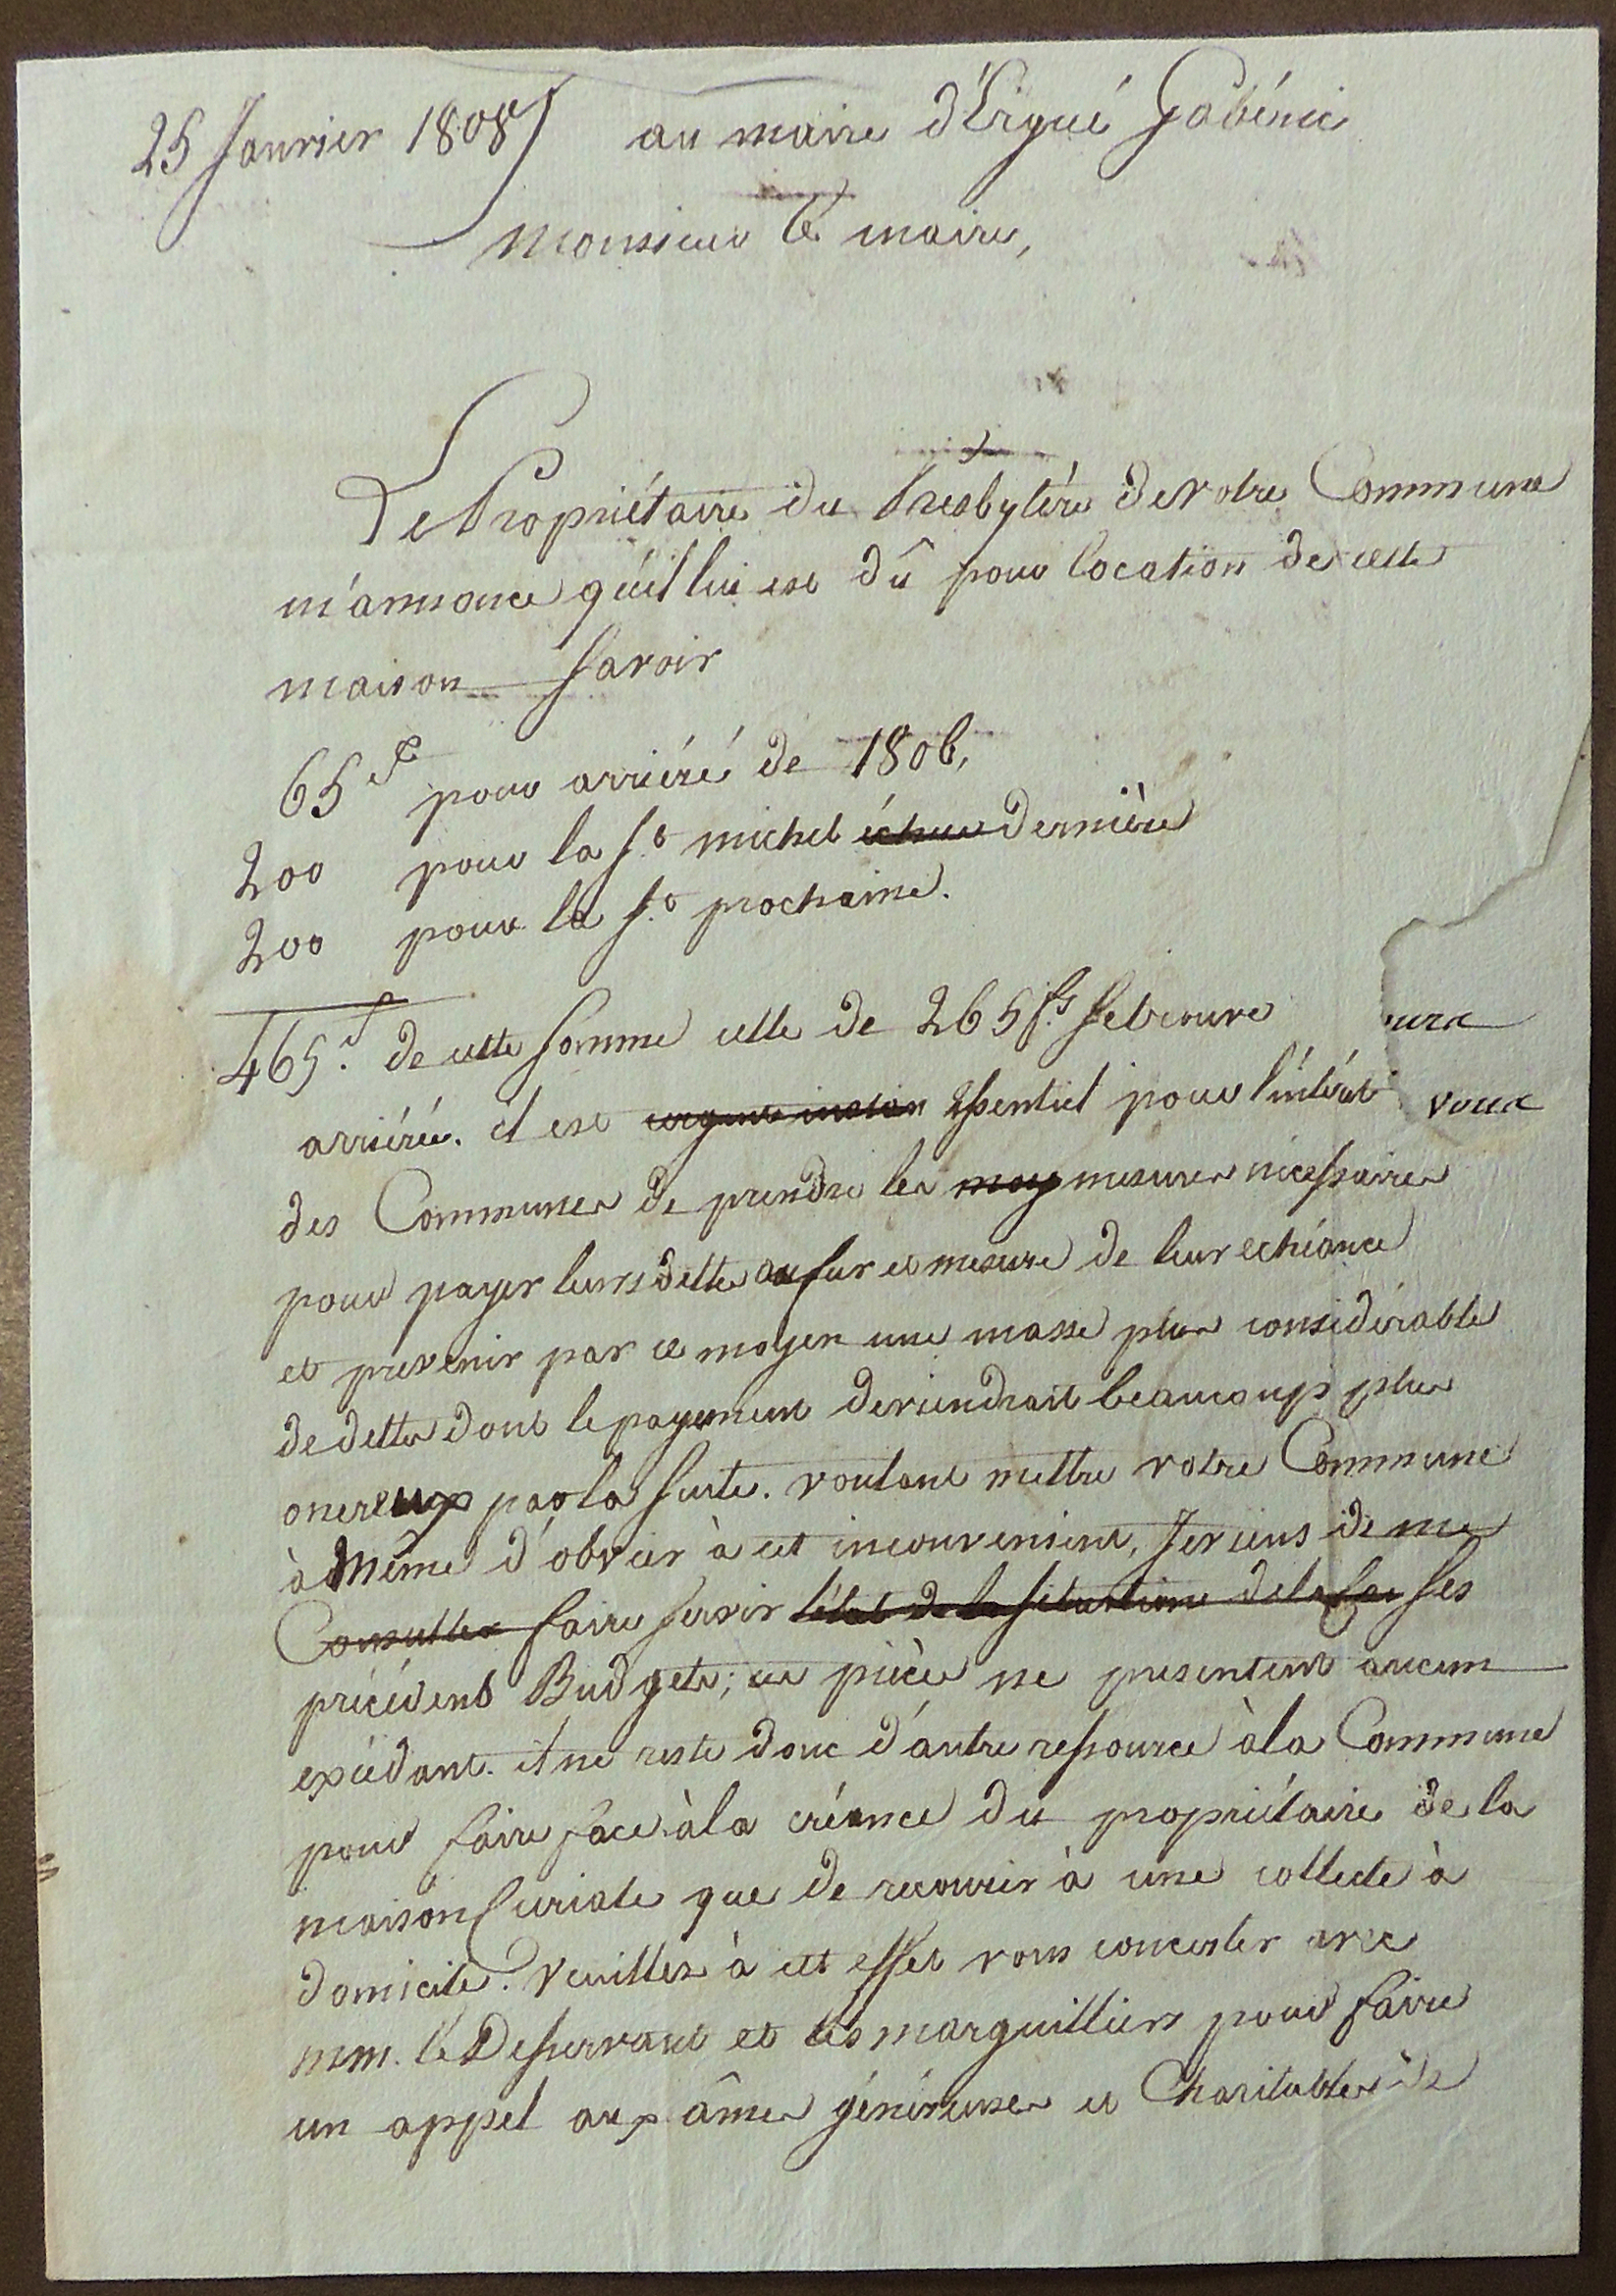 25 Janvier 1808 au maire d'Ergué Gabéric
Monsieur le maire,
Le Propriétaire du Presbytère de votre Commune
m'annonce qu'il lui est dû pour location de cette
maison Savoir
65 f pour arriéré de 1806,
200 pour la St michel échue dernière
200 pour la St prochaine.
465 f. de cette Somme celle de 265 fs. Se trouve
arriérée. il est urgent essentiel pour l'intérêt
des Communes de prendre les moy mesures nécessaires
pour payer leurs dettes au fur et mesure de leur echéance
et prevenir par ce moyen une masse plus considérable
de dettes dont le payement deviendrait beaucoup plus
onereux par la Suite. voulant mettre votre Commune
à Même d'obvier à cet inconvenient, Je viens de me
Consulter faire servir l'état de la Situation de la Ses
précédents Budgets; ces pièces ne presentent aucun
excédant. il ne reste donc d'autre ressource à la Commune
pour faire face à la créance du propriétaire de la
maison Curiale que de recourir à une collecte à
domicile. Veuillez à cet effet vous concerter avec
mm. le Desservant et les marguilliers pour faire
un appel aux âmes généreuses et Charitables de